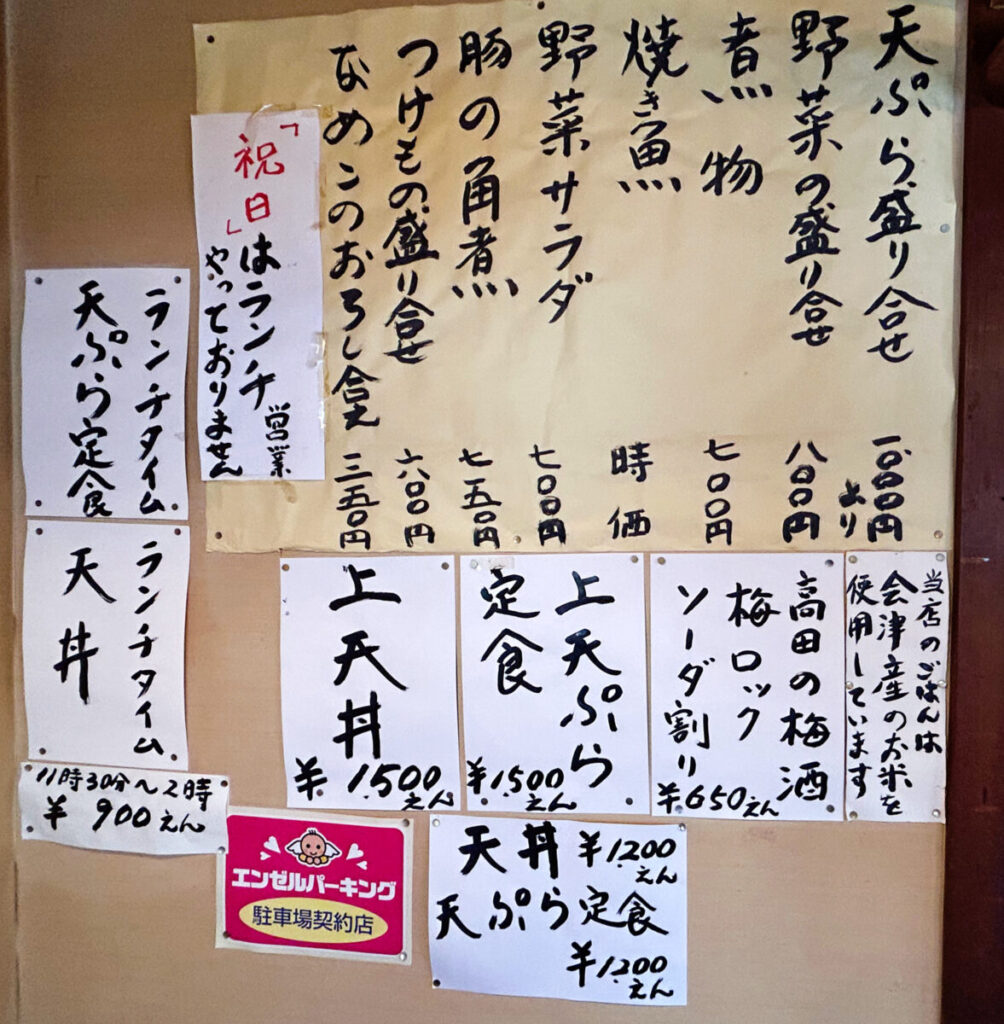 天ぷら盛り合せ 一、000円より
野菜の盛り合せ 八00円
煮物 七00円
焼き魚 時価
野菜サラダ 七00円
豚の角煮 七五0円
つけもの盛り合せ 六00円
なめこのおろし合え 三五0円
「祝日」はランチ営業
やっておりません
ランチタイム
天ぷら定食
ランチタイム
天丼
11時30分〜2時
¥900えん
当店のごはんは
会津産のお米を
使用しています
高田の梅酒
梅ロック
ソーダ割り
¥650えん
上天ぷら
定食
¥1,500えん
上天丼
¥1,500えん
天丼 ¥1,200えん
天ぷら定食
¥1,200えん
エンゼルパーキング
駐車場契約店